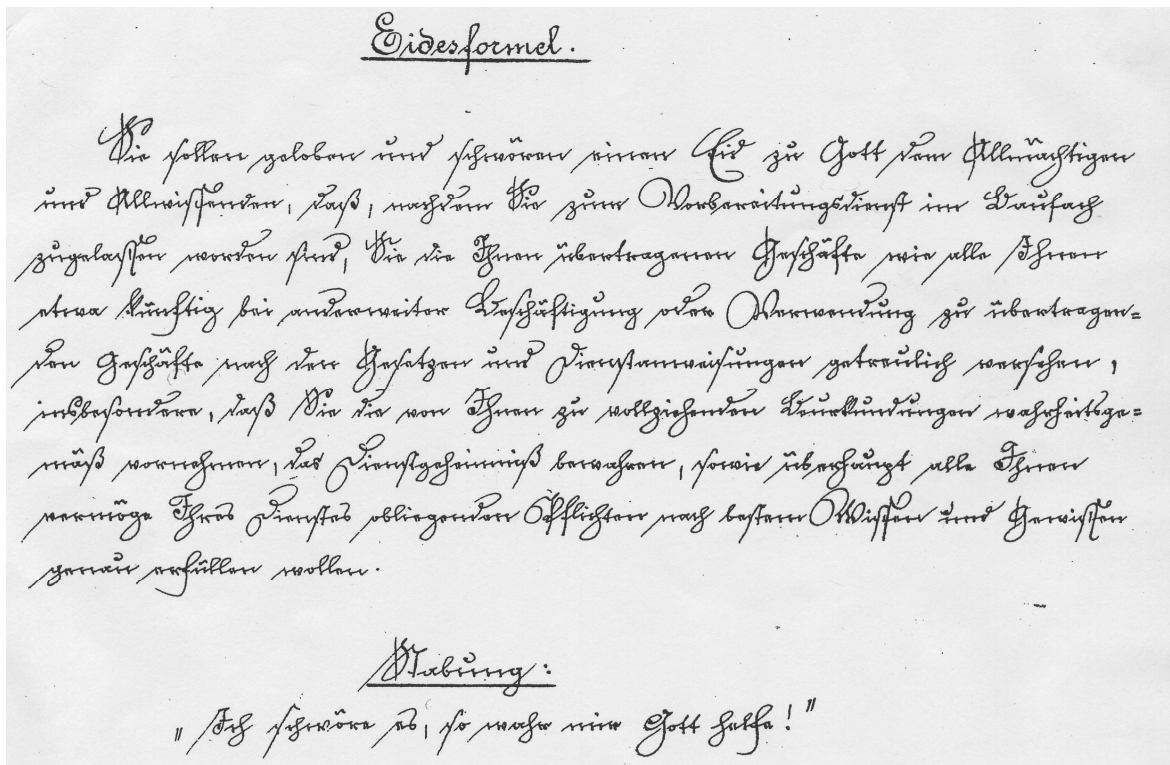 Eidesformel.
Sie sollen geloben und schwören einen Eid zu Gott dem Allmächtigen
und Allwissenden, daß, nachdem Sie zum Vorbereitungsdienst im Baufach
zugelassen worden sind, Sie die Ihnen übertragenen Geschäfte wie alle Ihnen
etwa künftig bei anderweiter Beschäftigung oder Verwendung zu übertragen=
den Geschäfte nach den Gesetzen und Dienstanweisungen getreulich versehen,
insbesondere, daß Sie die von Ihnen zu vollziehenden Beurkundungen wahrheitsge=
mäß vornehmen, das Dienstgeheimniß bewahren, sowie überhaupt alle Ihnen
vermöge Ihres Dienstes obliegenden Pflichten nach bestem Wissen und Gewissen
genau erfüllen wollen.
Stabung:
„Ich schwöre es, so wahr mir Gott helfe!"